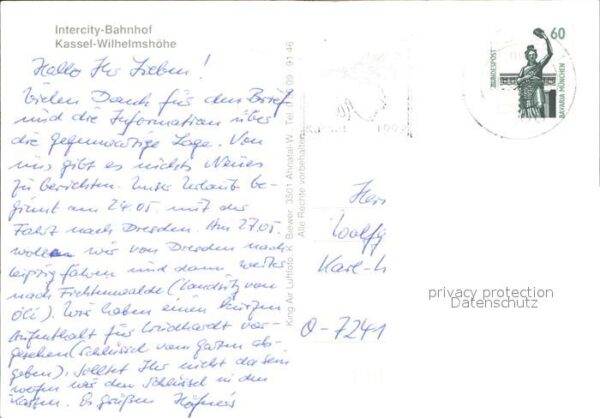 Intercity-Bahnhof
Kassel-Wilhelmshöhe
Hallo Ihr Lieben!
Vielen Dank für den Brief
und die Information über
die gegenwärtige Lage. Von
uns gibt es nichts Neues
zu berichten. Unser Urlaub be-
ginnt am 24.05. mit der
Fahrt nach Dresden. Am 27.05.
wollen wir von Dresden nach
Leipzig fahren und dann weiter
nach Fichtenwalde ( von
Oli). Wir haben einen kurzen
Aufenthalt für vor-
gesehen (Schlüssel vom Garten ab-
geben). Solltet Ihr nicht da sein
werfen wir den Schlüssel in den
Kasten. Es grüßen
King Air Luftfoto K. Biewer 3501 Ahnatal-W. Tel. 09 91 46
Alle Rechte vorbehalten
60
BUNDESPOST
BAVARIA MÜNCHEN
Herr
Wolfg
Karl-
O-7241
privacy protection
Datenschutz